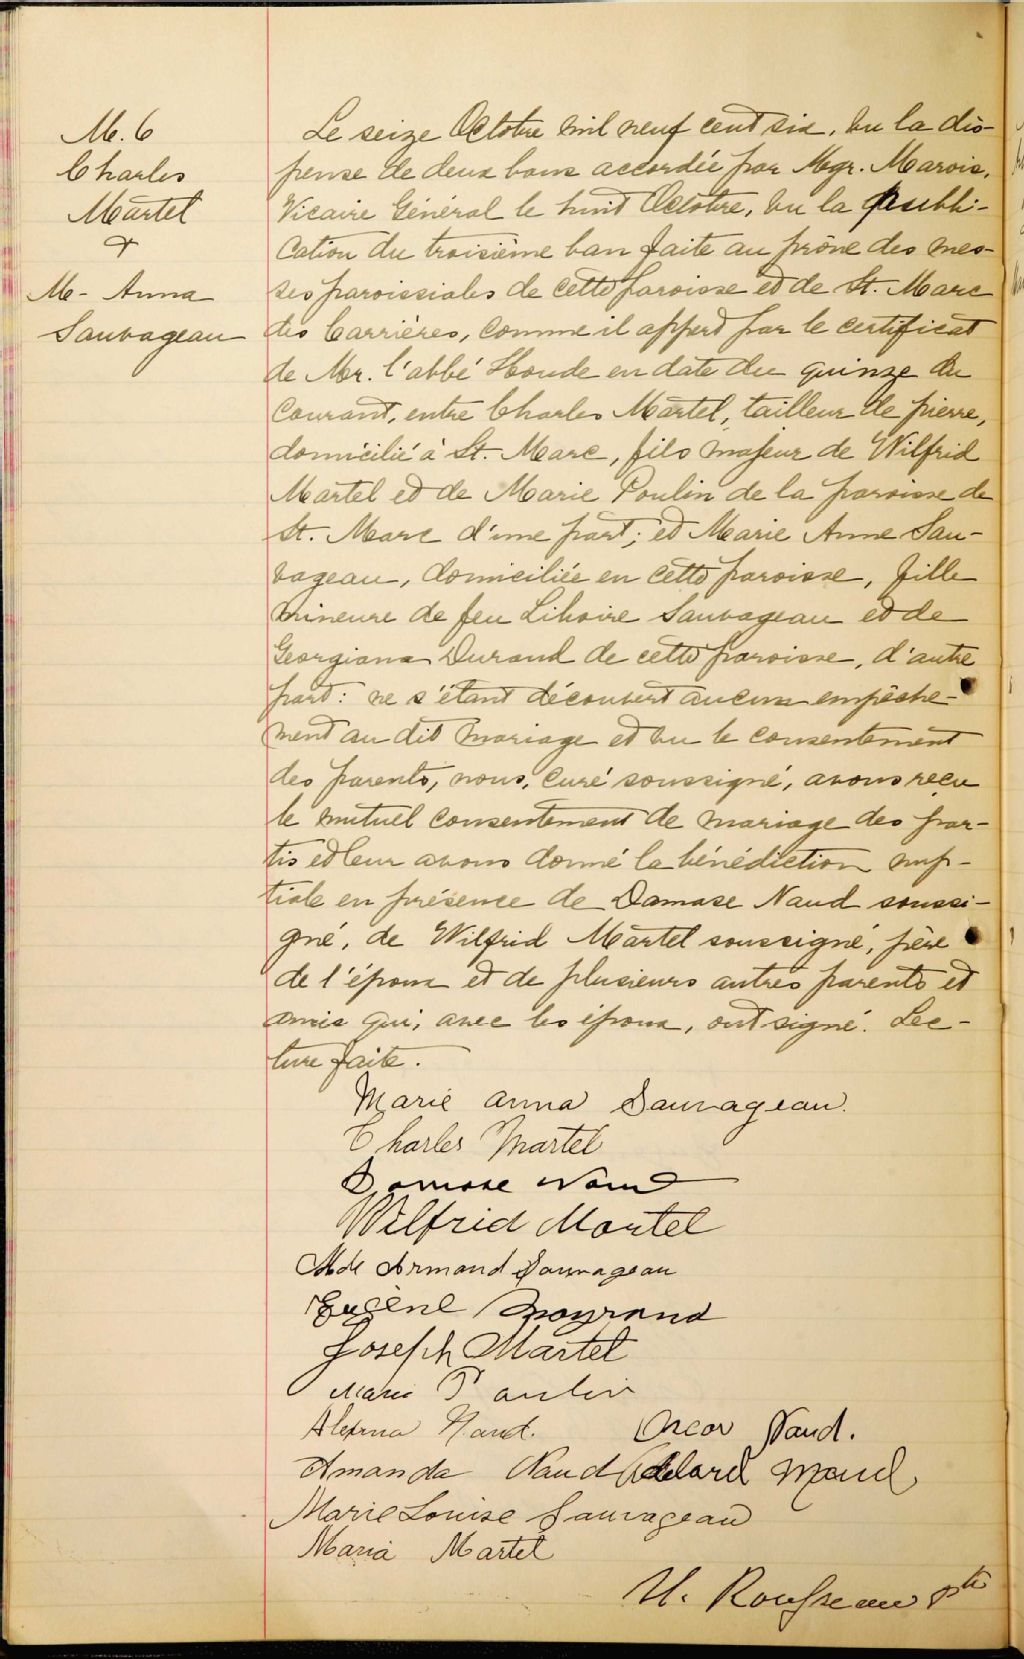 M. 6
Charles
Martel
&
M- Anna
Sauvageau
Le seize Octobre mil neuf cent six, vu la dis-
pense de deux bans accordée par Mgr. Marois,
Vicaire Général le huit Octobre, vu la publi-
cation du troisième ban faite au prône des mes-
ses paroissiales de cette paroisse et de St. Marc
des Carrières, comme il appert par le certificat
de Mr. l'abbé Houde en date du quinze du
courant, entre Charles Martel, tailleur de pierre,
domicilié à St. Marc, fils majeur de Wilfrid
Martel et de Marie Poulin de la paroisse de
St. Marc d'une part; et Marie Anne Sau-
vageau, domiciliée en cette paroisse, fille
mineure de feu Liboire Sauvageau et de
Georgiana Durand de cette paroisse, d'autre
part: ne s'étant découvert aucun empêche-
ment au dit mariage et vu le consentement
des parents, nous, curé soussigné, avons reçu
le mutuel consentement de mariage des par-
tis et leur avons donné la bénédiction nup-
tiale en présence de Damase Naud soussi-
gné, de Wilfrid Martel soussigné, père
de l'époux et de plusieurs autres parents et
amis qui, avec les époux, ont signé. Lec-
ture faite.
Marie Anna Sauvageau.
Charles Martel
Damase Naud
Wilfrid Martel
Mde Armand Sauvageau
Eugène
Joseph Martel
Marie Paulin
Naud. Oscar Naud.
Amanda Naud Adelard Naud
Marie Louise Sauvageau
Maria Martel
U. Rousseau Ptre